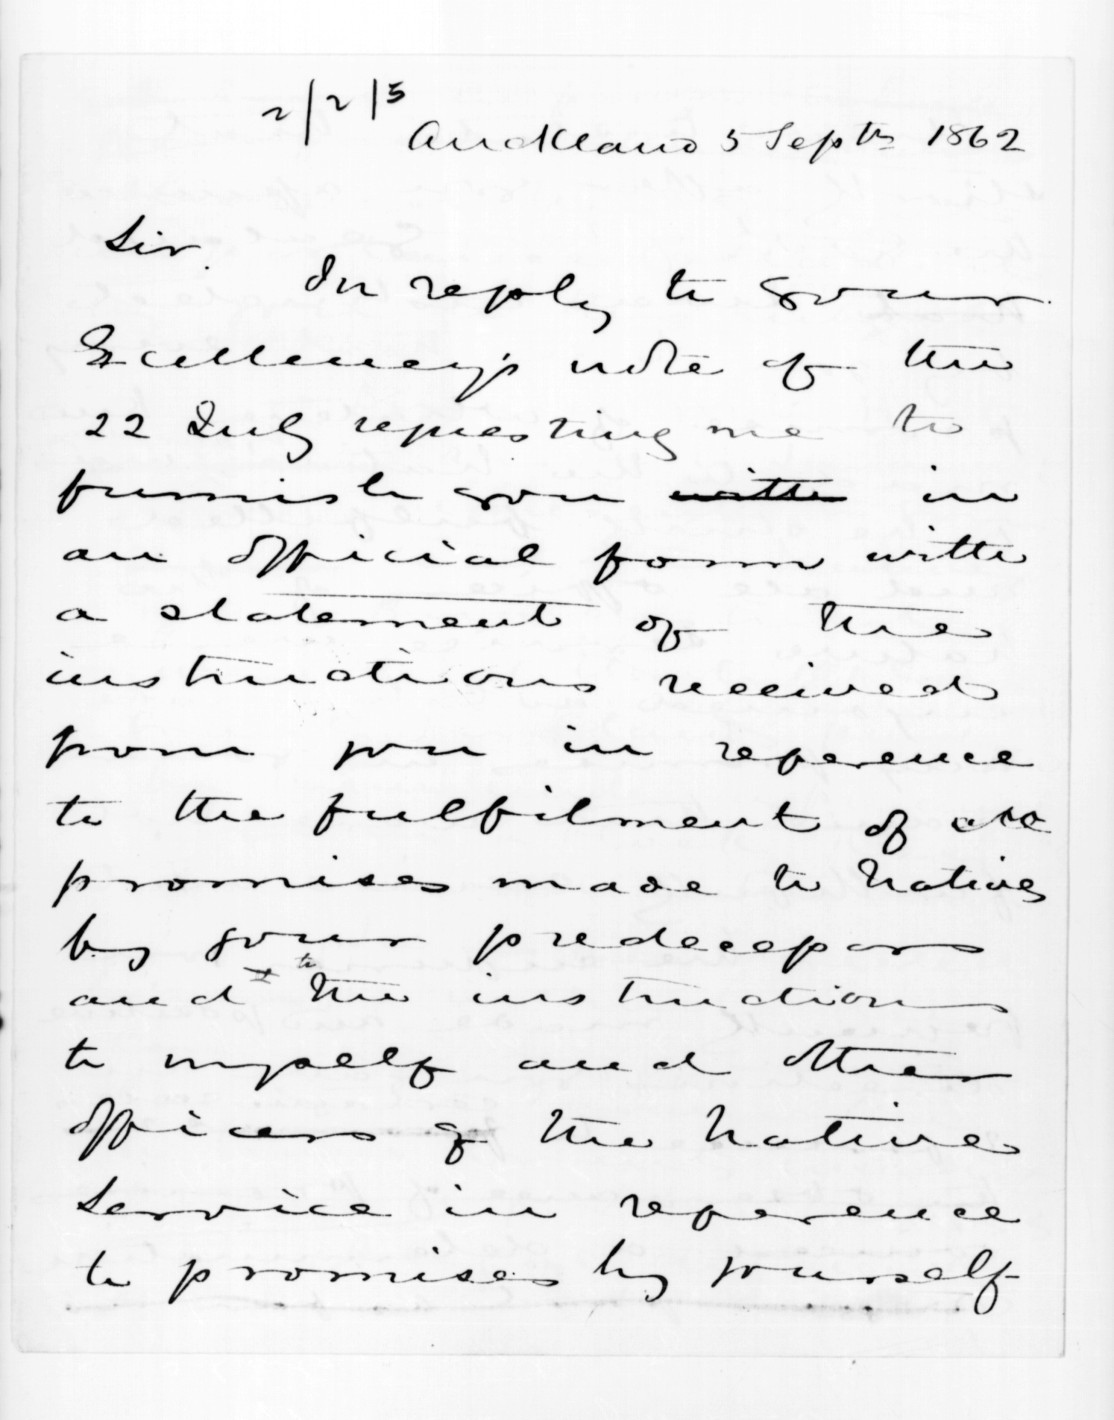 2/2/5
Auckland 5 Septr 1862
Sir.
In reply to your
Excellency's note of the
22 July requesting me to
furnish you with in
an official form with
a statement of the
instructions received
from you in reference
to the fulfilment of all
promises made to Natives
by your predecessors
and to the instructions
to myself and other
officers of the Native
Service in reference
to promises by yourself